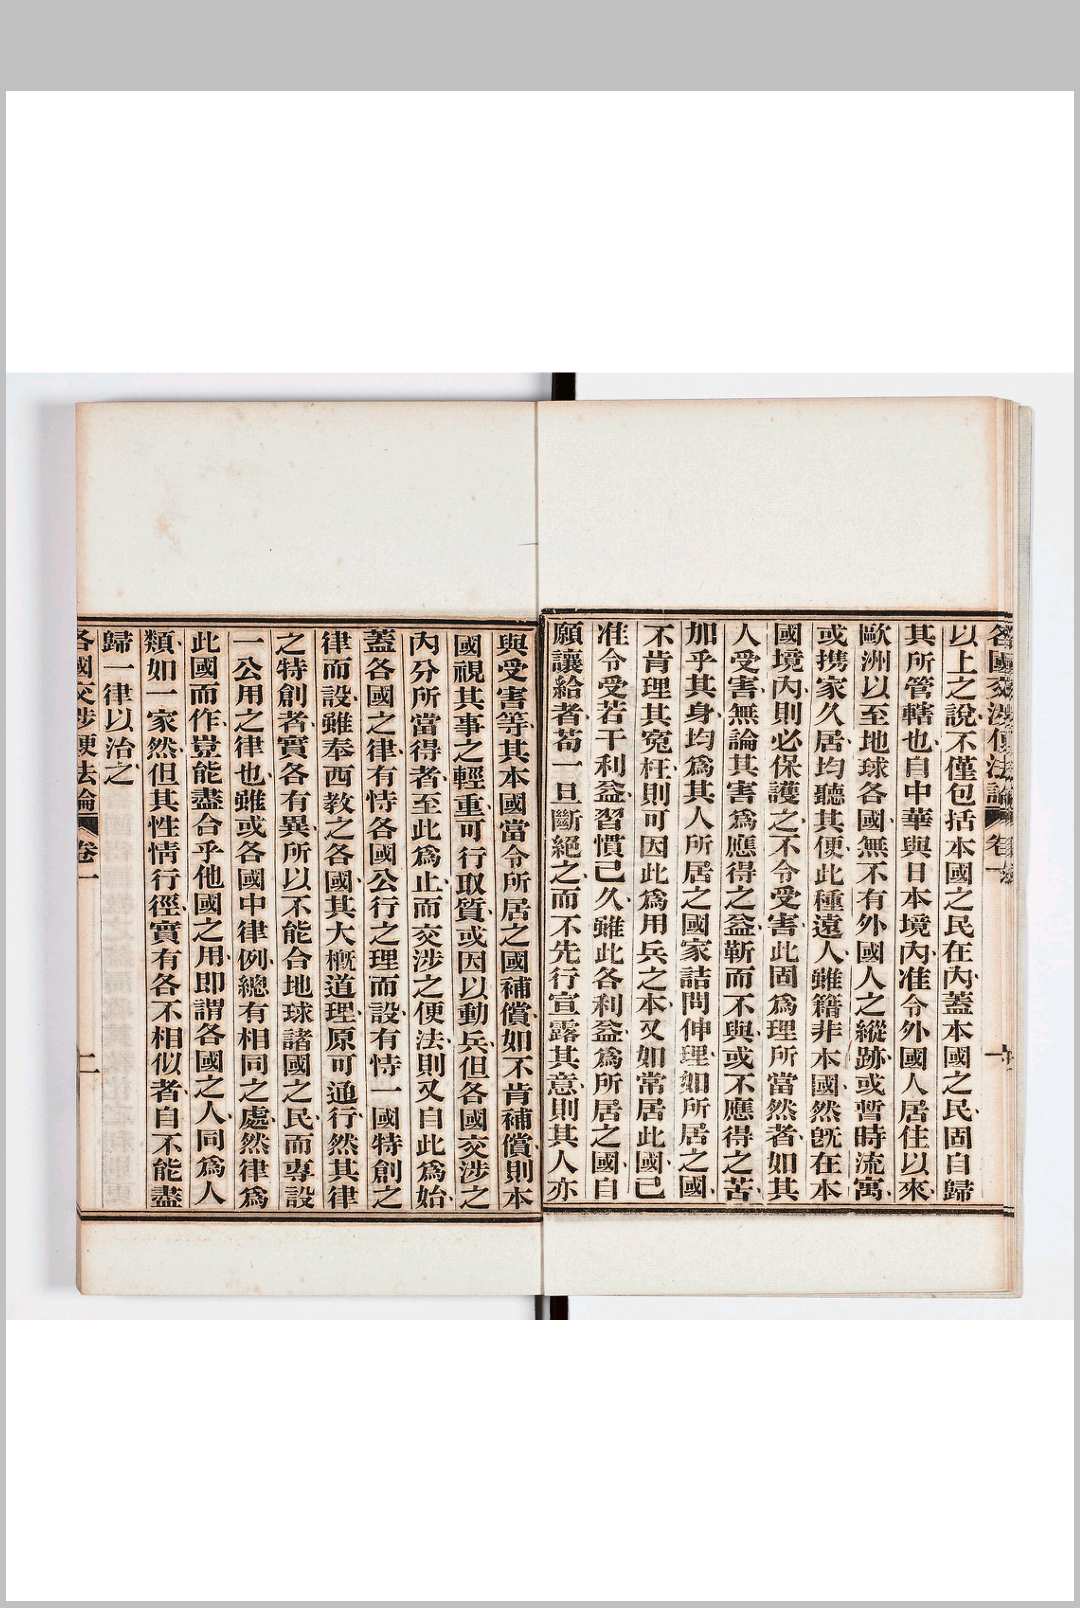 各國交涉便法論 卷一 一
以上之說不僅包括本國之民在內蓋本國之民固自歸
其所管轄也自中華與日本境內准令外國人居住以來
歐洲以至地球各國無不有外國人之縱跡或暫時流寓
或携家久居均聽其便此種遠人雖籍非本國然旣在本
國境內則必保護之不令受害此固爲理所當然者如其
人受害無論其害爲應得之益靳而不與或不應得之苦
加乎其身均爲其人所居之國家詰問伸理如所居之國
不肯理其寃枉則可因此爲用兵之本又如常居此國已
准令受若干利益習慣已久雖此各利益爲所居之國自
願讓給者苟一旦斷絕之而不先行宣露其意則其人亦
與受害等其本國當令所居之國補償如不肯補償則本
國視其事之輕重可行取質或因以動兵但各國交涉之
內分所當得者至此爲止而交涉之便法則又自此爲始
蓋各國之律有恃各國公行之理而設有恃一國特創之
律而設雖奉西教之各國其大概道理原可通行然其律
之特創者實各有異所以不能合地球諸國之民而專設
一公用之律也雖或各國中律例總有相同之處然律爲
此國而作豈能盡合乎他國之用即謂各國之人同爲人
類如一家然但其性情行徑實有各不相似者自不能盡
歸一律以治之
各國交涉便法論 卷一 二